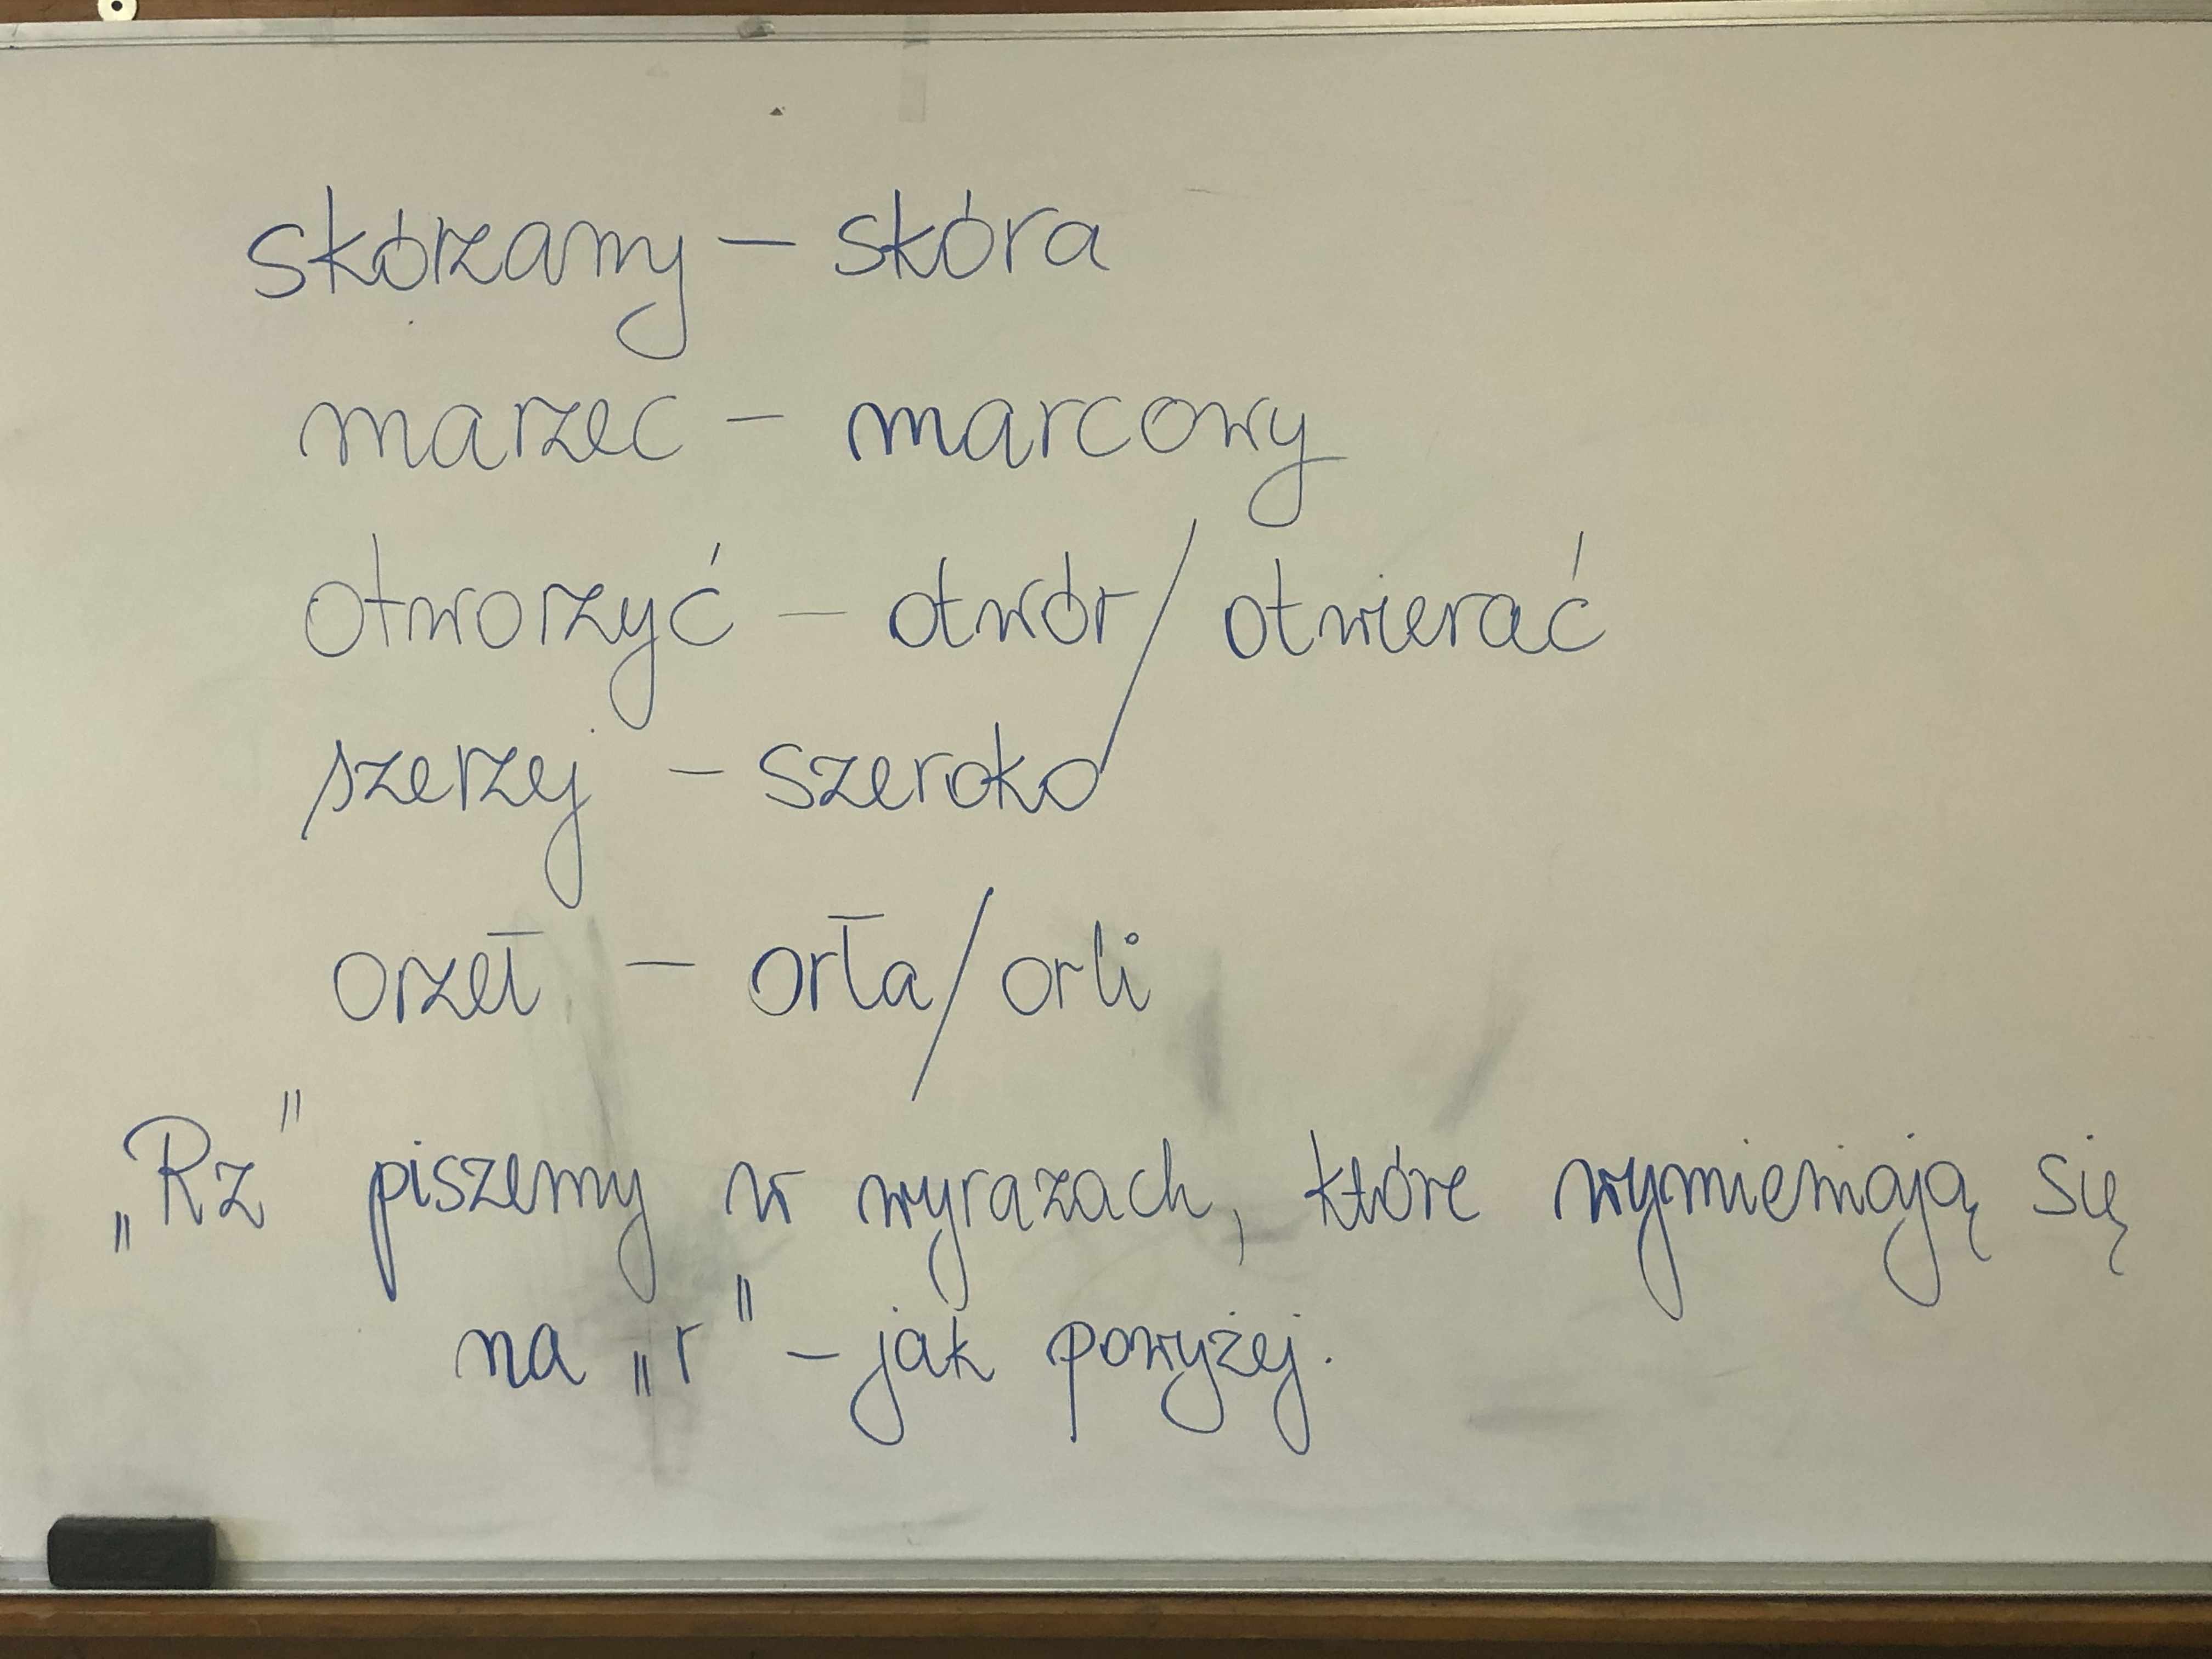 skórzany – skóra
marzec – marcowy
otworzyć – otwór / otwierać
szerzej – szeroko
orzeł – orła / orli
„Rz" piszemy w wyrazach, które wymieniają się
na „r" – jak powyżej.